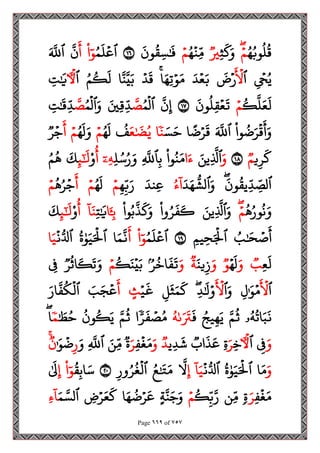 قُلُوبُهُمۡۖ وَكَثِيرٞ مِّنۡهُمۡ فَٰسِقُونَ ١٦ ٱعۡلَمُوٓاْ أَنَّ ٱللَّهَ
يُحۡيِ ٱلۡأَرۡضَ بَعۡدَ مَوۡتِهَاۚ قَدۡ بَيَّنَّا لَكُمُ ٱلۡأٓيَٰتِ
لَعَلَّكُمۡ تَعۡقِلُونَ ١٧ إِنَّ ٱلۡمُصَّدِّقِينَ وَٱلۡمُصَّدِّقَٰتِ
وَأَقۡرَضُواْ ٱللَّهَ قَرۡضًا حَسَنٗا يُضَٰعَفُ لَهُمۡ وَلَهُمۡ أَجۡرٞ
كَرِيمٞ ١٨ وَٱلَّذِينَ ءَامَنُواْ بِٱللَّهِ وَرُسُلِهِۦٓ أُوْلَٰٓئِكَ هُمُ
ٱلصِّدِّيقُونَۖ وَٱلشُّهَدَآءُ عِندَ رَبِّهِمۡ لَهُمۡ أَجۡرُهُمۡ
وَنُورُهُمۡۖ وَٱلَّذِينَ كَفَرُواْ وَكَذَّبُواْ بِـَٔايَٰتِنَآ أُوْلَٰٓئِكَ
أَصۡحَٰبُ ٱلۡجَحِيمِ ١٩ ٱعۡلَمُوٓاْ أَنَّمَا ٱلۡحَيَوٰةُ ٱلدُّنۡيَا
لَعِبٞ وَلَهۡوٞ وَزِينَةٞ وَتَفَاخُرُۢ بَيۡنَكُمۡ وَتَكَاثُرٞ فِي
ٱلۡأَمۡوَٰلِ وَٱلۡأَوۡلَٰدِۖ كَمَثَلِ غَيۡثٍ أَعۡجَبَ ٱلۡكُفَّارَ
نَبَاتُهُۥ ثُمَّ يَهِيجُ فَتَرَىٰهُ مُصۡفَرّٗا ثُمَّ يَكُونُ حُطَٰمٗاۖ
وَفِي ٱلۡأٓخِرَةِ عَذَابٞ شَدِيدٞ وَمَغۡفِرَةٞ مِّنَ ٱللَّهِ وَرِضۡوَٰنٞۚ
وَمَا ٱلۡحَيَوٰةُ ٱلدُّنۡيَآ إِلَّا مَتَٰعُ ٱلۡغُرُورِ ٢٠ سَابِقُوٓاْ إِلَىٰ
مَغۡفِرَةٖ مِّن رَّبِّكُمۡ وَجَنَّةٍ عَرۡضُهَا كَعَرۡضِ ٱلسَّمَآءِ
Page ٦٦٩ of ٧٥٧